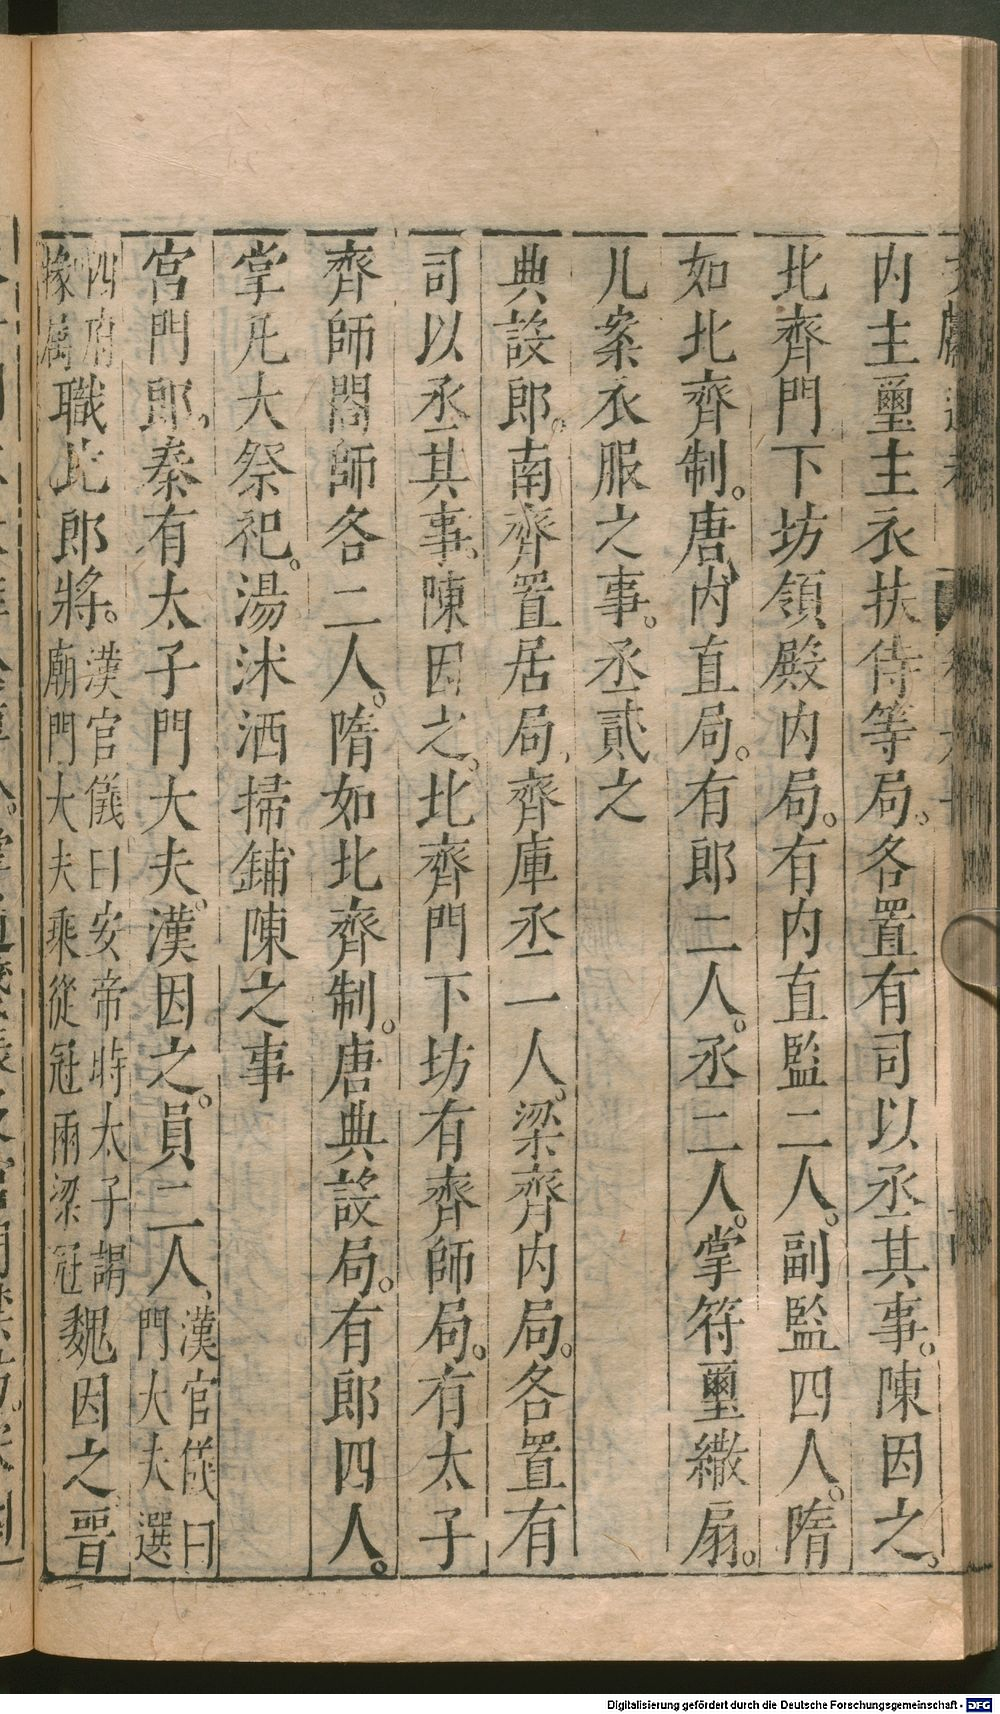 内主璽主衣扶侍等局。各置有司以丞其事。陳因之。
北齊門下坊領殿内局。有内直監二人。副監四人。隋
如北齊制。唐内直局。有郎二人。丞二人。掌符璽繖扇。
几案衣服之事。丞貳之
典設郎。南齊置居局、齊庫丞一人。梁齊内局。各置有
司以丞其事。陳因之。北齊門下坊有齊師局。有太子
齊師閤師各二人。隋如北齊制。唐典設局。有郎四人。
掌凡大祭祀。湯沐洒掃鋪陳之事
宮門郎。秦有太子門大夫。漢因之。員二人、漢官儀曰
門大夫選
四府
掾属職比郎將。漢官儀曰安帝時太子謁
廟門大夫乘從冠兩梁冠魏因之。晉
Digitalisierung gefördert durch die Deutsche Forschungsgemeinschaft - DFG